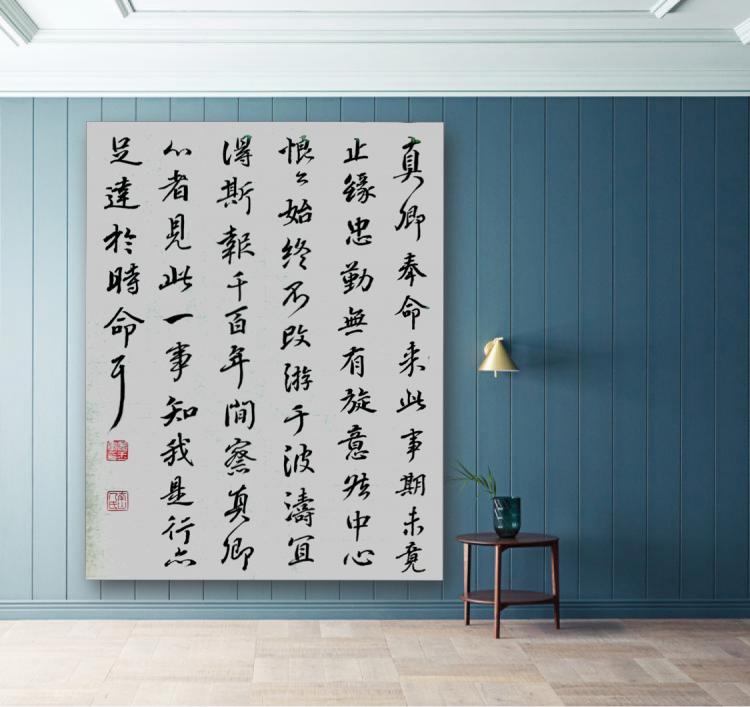 真卿奉命来此事期未竟
止緣忠勤無有旋意然中心
悢々始終不改游于波濤宜
得斯報千百年間察真卿
心者見此一事知我是行亦
足達於時命耳